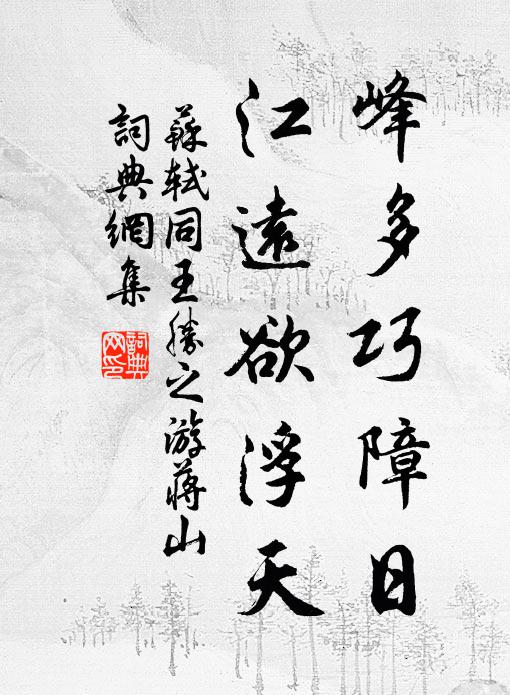 峰多巧障日
江遠欲浮天
蘇軾同王勝之游蔣山
詞典網集
詞典网印